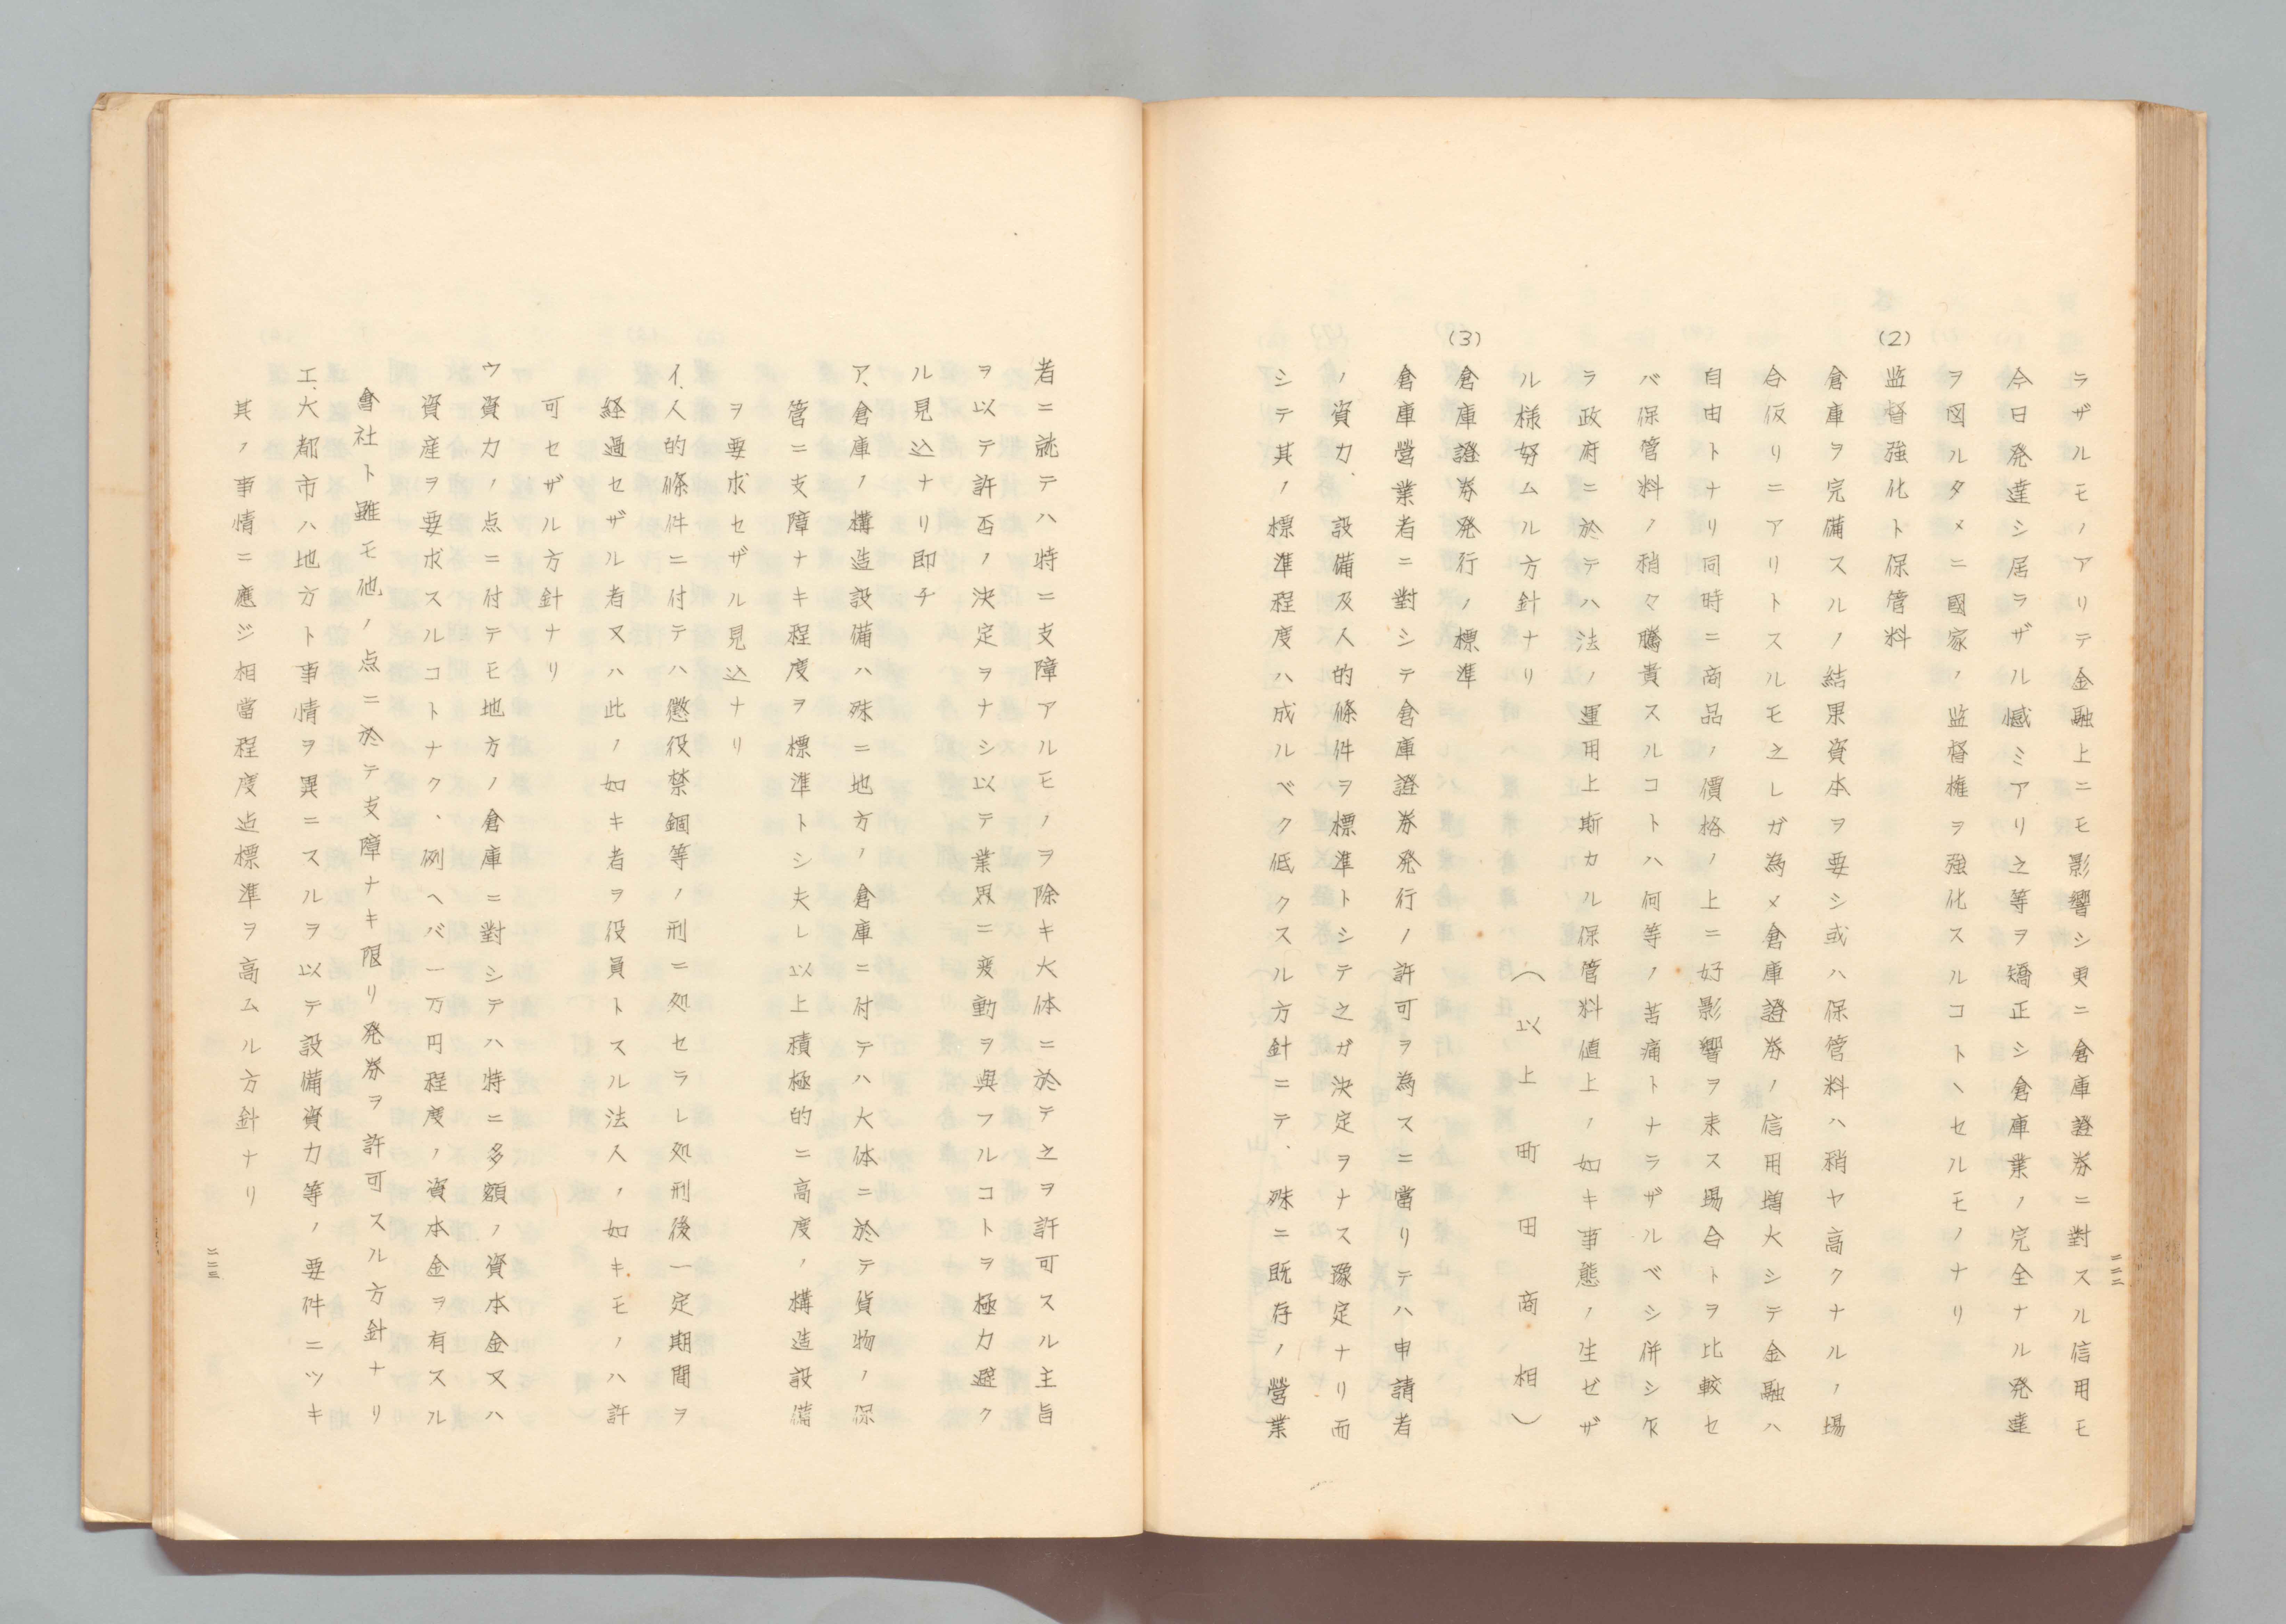 ラザルモノアリテ金融上ニモ影響シ更ニ倉庫證券ニ對スル信用モ
今日発達シ居ラザル憾ミアリ之等ヲ矯正シ倉庫業ノ完全ナル発達
ヲ図ルタメニ國家ノ監督権ヲ強化スルコトヽセルモノナリ
(2) 監督強化ト保管料
倉庫ヲ完備スルノ結果資本ヲ要シ或ハ保管料ハ稍ヤ高クナルノ場
合仮リニアリトスルモ之レガ為メ倉庫證券ノ信用増大シテ金融ハ
自由トナリ同時ニ商品ノ價格ノ上ニ好影響ヲ来ス場合トヲ比較セ
バ保管料ノ稍々騰貴スルコトハ何等ノ苦痛トナラザルベシ併シ乍
ラ政府ニ於テハ法ノ運用上斯カル保管料値上ノ如キ事態ノ生ゼザ
ル様努ムル方針ナリ
(以上 町田 商相)
(3) 倉庫證券発行ノ標準
倉庫營業者ニ對シテ倉庫證券発行ノ許可ヲ為スニ當リテハ申請者
ノ資力、設備及人的條件ヲ標準トシテ之ガ決定ヲナス豫定ナリ而
シテ其ノ標準程度ハ成ルベク低クスル方針ニテ、殊ニ既存ノ營業
二二二
者ニ就テハ特ニ支障アルモノヲ除キ大体ニ於テ之ヲ許可スル主旨
ヲ以テ許否ノ決定ヲナシ以テ業界ニ変動ヲ與フルコトヲ極力避ク
ル見込ナリ即チ
ア、倉庫ノ構造設備ハ殊ニ地方ノ倉庫ニ付テハ大体ニ於テ貨物ノ保
管ニ支障ナキ程度ヲ標準トシ夫レ以上積極的ニ高度ノ構造設備
ヲ要求セザル見込ナリ
イ、人的條件ニ付テハ懲役禁錮等ノ刑ニ処セラレ処刑後一定期間ヲ
経過セザル者又ハ此ノ如キ者ヲ役員トスル法人ノ如キモノハ許
可セザル方針ナリ
ウ資力ノ点ニ付テモ地方ノ倉庫ニ對シテハ特ニ多額ノ資本金又ハ
資産ヲ要求スルコトナク、例ヘバ一万円程度ノ資本金ヲ有スル
會社ト雖モ他ノ点ニ於テ支障ナキ限リ発券ヲ許可スル方針ナリ
エ、大都市ハ地方ト事情ヲ異ニスルヲ以テ設備資力等ノ要件ニツキ
其ノ事情ニ應ジ相當程度迄標準ヲ高ムル方針ナリ
二二三